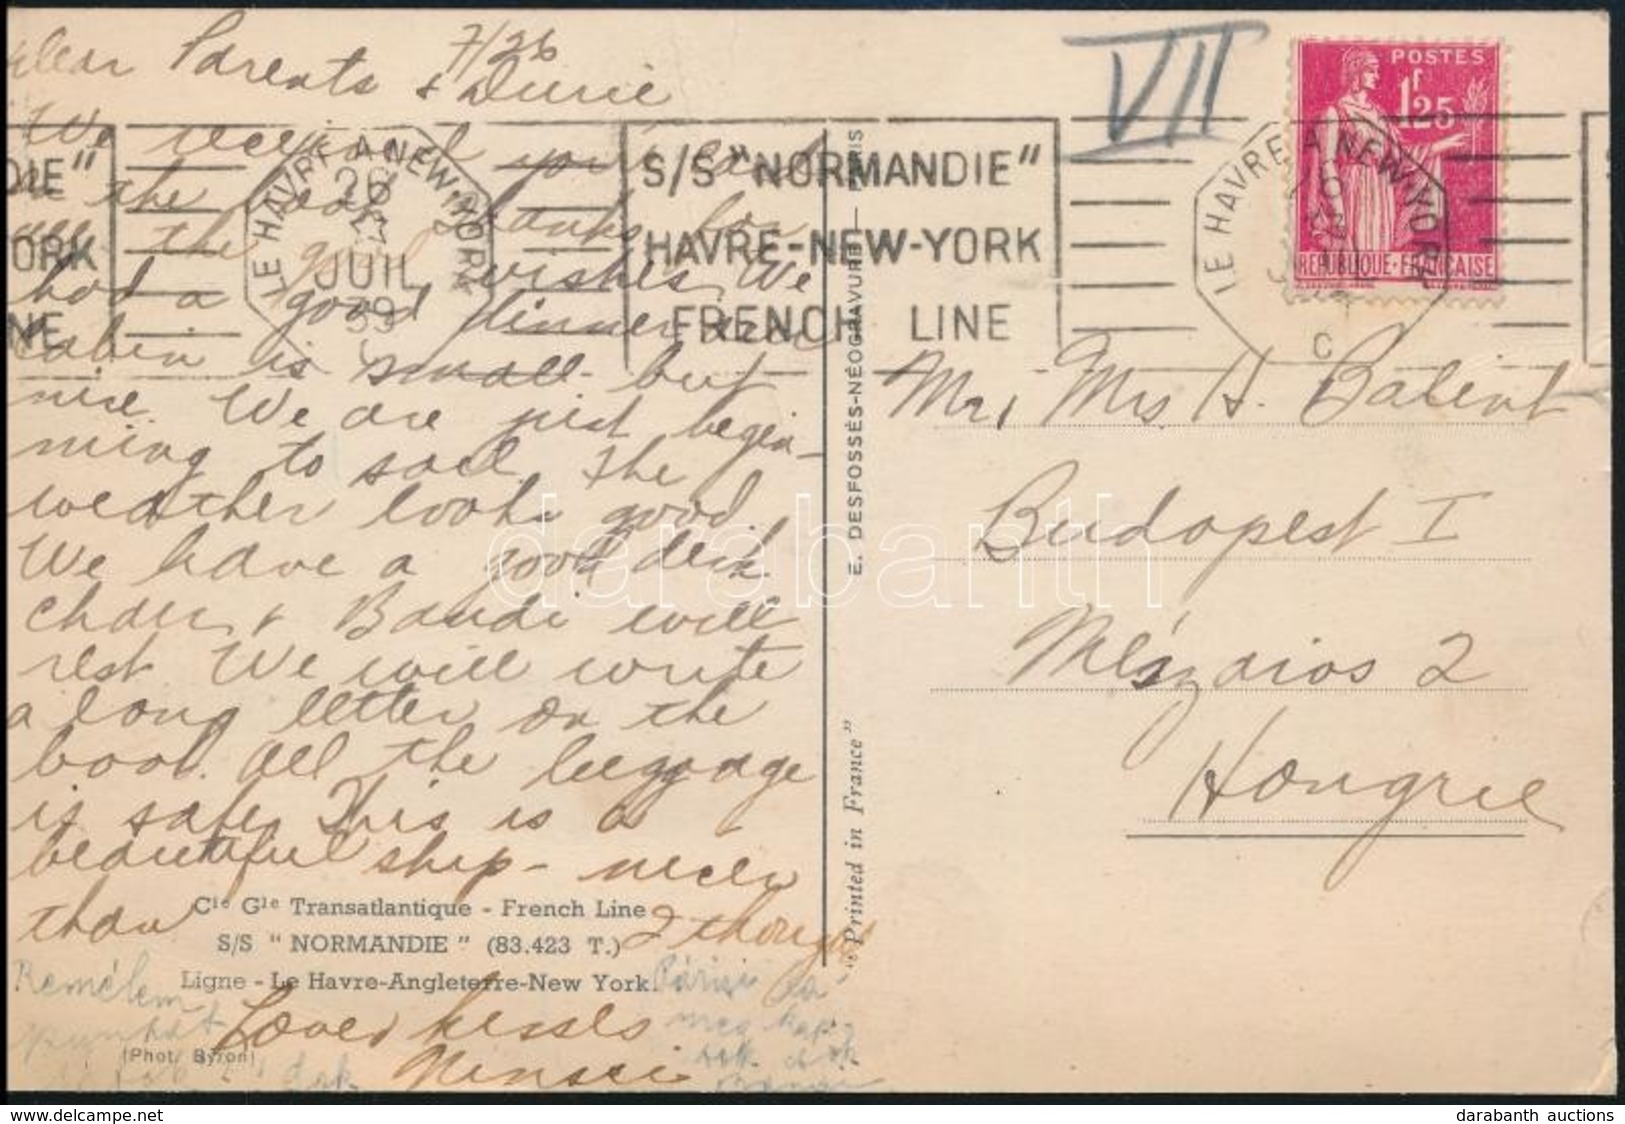 7/26
Dear Parents & Duric
We received your card
on the boat thanks for
all the good wishes. We
had a good dinner and
cabin is small but
nice. We are just begin-
ning to sail. The
weather looks good.
We have a good deck
chair & Bandi will
rest. We will write
a long letter on the
boat. All the luggage
is safe. This is a
beautiful ship - nicer
than I thought
Love & kisses
Remélem
Párisi
VII
POSTES
1F25
REPUBLIQUE-FRANCAISE
LE HAVRE A NEW-YORK
26
JUIL
39
S/S "NORMANDIE"
HAVRE-NEW-YORK
FRENCH LINE
LE HAVRE A NEW-YORK
C
Mr, Mrs H. Balint
Budapest I
Mészáros 2
Hongrie
E. DESFOSSÉS-NÉOGRAVURE - PARIS
"Printed in France"
Cie Gle Transatlantique - French Line
S/S "NORMANDIE" (83.423 T.)
Ligne - Le Havre-Angleterre-New York
(Phot. Byron)
darabanth
darabanth auctions